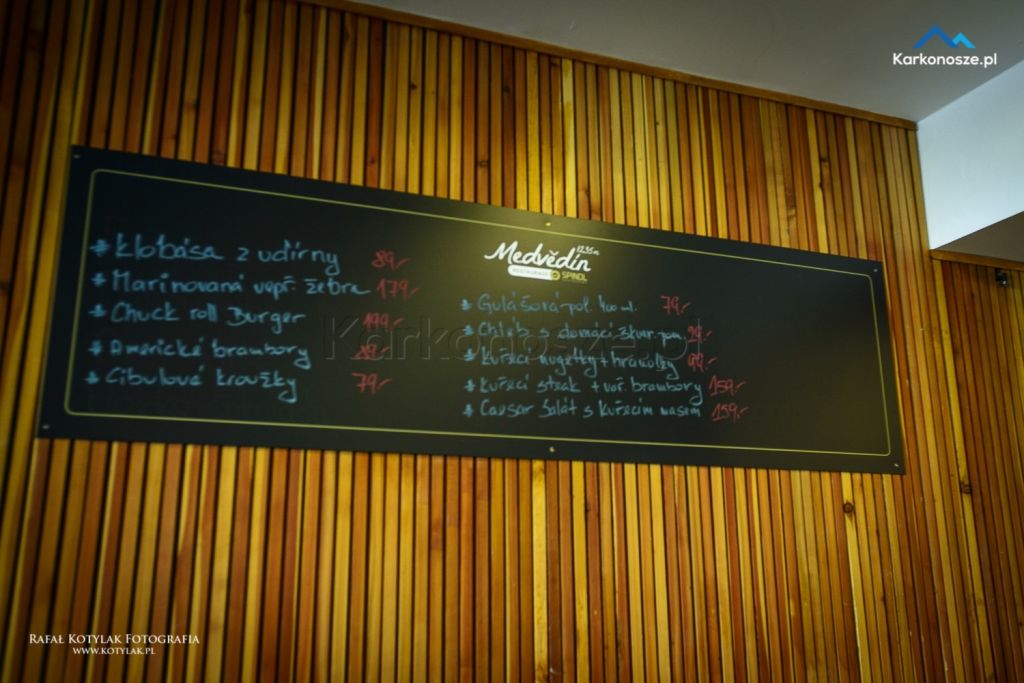 Karkonosze.pl
* Klobása z udírny 89,-
* Marinovaná vepř. žebra 179,-
* Chuck roll Burger 199,-
* Americké brambory 89,-
* Cibulové kroužky 79,-
Medvědín 1235m
RESTAURACE SPINDL
* Gulášová pol. 400 ml. 79,-
* Chléb s domácí škvar. pom.
* Kuřecí nugetky + hranolky 99,-
* Kuřecí steak + vař. brambory 159,-
* Caesar salát s kuřecím masem 159,-
Karkonosze.pl
RAFAŁ KOTYLAK FOTOGRAFIA
WWW.KOTYLAK.PL